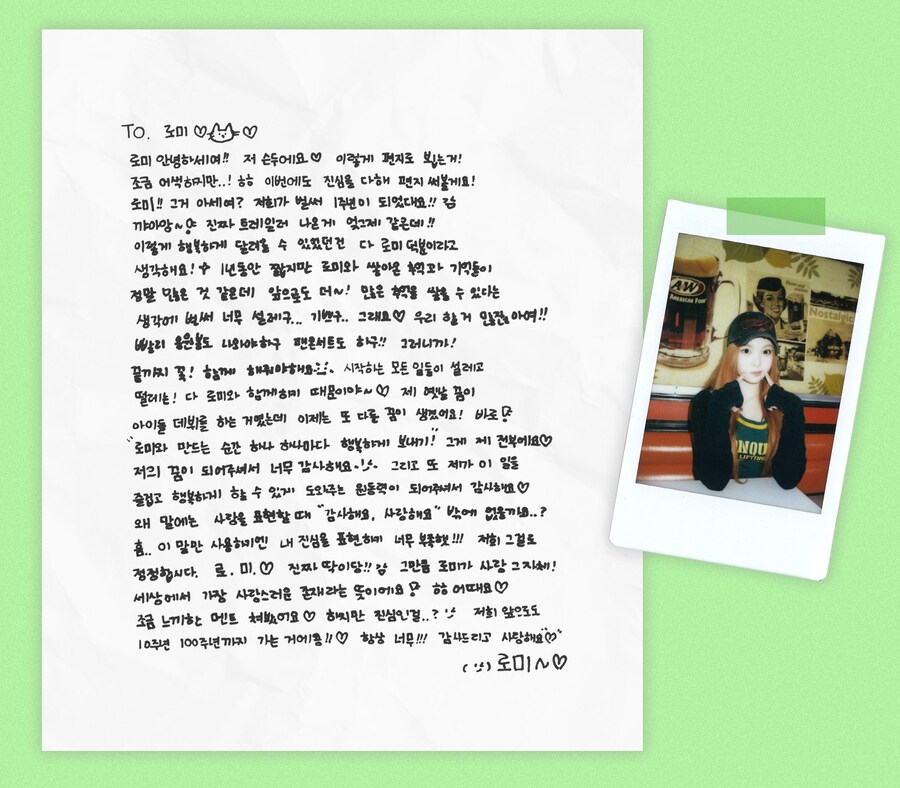 TO. 로미♡♡
로미 안녕하세여!! 저 순두에요♡ 이렇게 편지로 뵙는거!
조금 어색하지만..! ㅎㅎ 이번에도 진심을 다해 편지 써볼게요!
로미!! 그거 아세여? 저희가 벌써 1주년이 되었대요!!
꺄아앙~ 진짜 트레일러 나온게 엊그제 같은데!!
이렇게 행복하게 달려올 수 있었던건 다 로미 덕분이라고
생각해요! 1년동안 짧지만 로미와 쌓아온 추억과 기억들이
정말 많은 것 같은데 앞으로도 더~! 많은 추억을 쌓을 수 있다는
생각에 벌써 너무 설레구... 기쁘구.. 그래요♡ 우리 할 거 많잖아여!!
빨리 응원봉도 나와야하구 팬콘서트도 하구!! 그러니까!
끝까지 꼭! 함께 해줘야해요 시작하는 모든 일들이 설레고
떨려는! 다 로미와 함께하기 때문이야~♡ 제 옛날 꿈이
아이돌 데뷔를 하는 거였는데 이제는 또 다른 꿈이 생겼어요! 바로
"로미와 만드는 순간 하나 하나마다 행복하게 보내기!" 그게 제 전부에요♡
저의 꿈이 되어주셔서 너무 감사해요 그리고 또 제가 이 일을
즐겁고 행복하게 할 수 있게 도와주는 원동력이 되어주셔서 감사해요♡
왜 말에는 사랑을 표현할 때 "감사해요, 사랑해요" 밖에 없을까요..?
흠.. 이 말만 사용하기엔 내 진심을 표현하기 너무 부족햇!!! 저희 그걸로
정정합시다. 로.미.♡ 진짜 딱이당!! 그만큼 로미가 사랑 그 자체!
세상에서 가장 사랑스러운 존재라는 뜻이에요 ㅎㅎ 어때요♡
조금 느끼한 멘트 쳐봤어요♡ 하지만 진심인걸..? 저희 앞으로도
10주년 100주년까지 가는 거에용!!♡ 항상 너무!!! 감사드리고 사랑해요♡
로미~♡
A&W
AMERICAN FOOD
Nostalgic
NQU
LIFTING